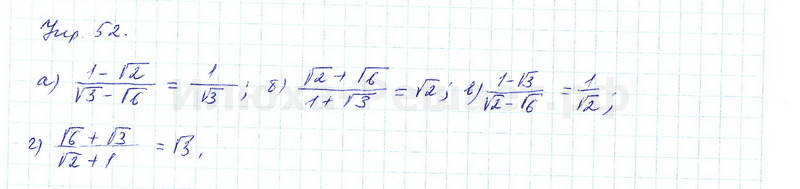 Упр. 52.
а) (1-√2)/(√3-√6) = 1/√3; б) (√2+√6)/(1+√3) = √2; в) (1-√3)/(√2-√6) = 1/√2;
г) (√6+√3)/(√2+1) = √3.